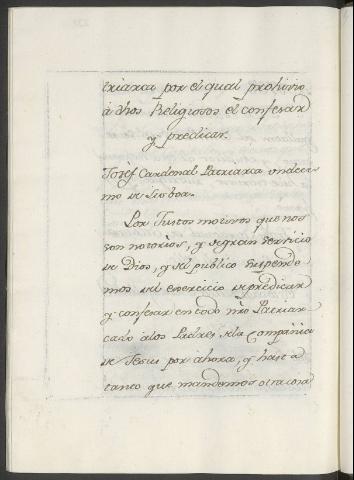 triarca por el qual prohivio
á dhos Religiosos el confesar
y predicar.
Josèf Cardenal Patriarca undeci-
mo de Lisboa.
Por Justos motivos que nos
son notorios, y de gran servicio
de Dios, y del publico suspende-
mos del exercicio de predicar
y confesar en todo nro Patriar-
cado alos Padres dela Compañia
de Jesus por ahora, y hasta
tanto que mandemos otra cosa